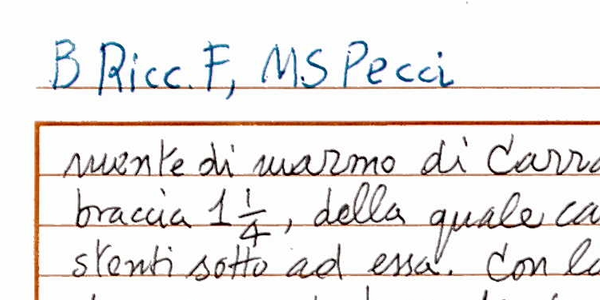 B Ricc. F, MS Pecci
mente di marmo di Carra
braccia 1 1/4, della quale ca
stenti sotto ad essa. Con la